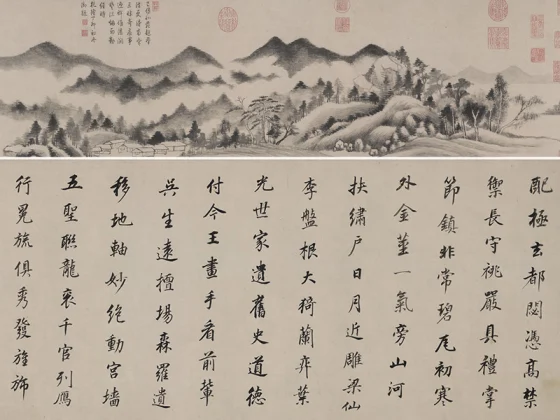 配極玄都閟憑高禁
禦長守祧嚴具禮掌
節鎮非常碧瓦初寒
外金莖一氣旁山河
扶繡戶日月近雕梁仙
李盤根大猗蘭奕葉
光世家遺舊史道德
付今王畫手看前輩
吳生遠擅場森羅遺
移地軸妙絕動宮墻
五聖聯龍袞千官列鴈
行冕旒俱秀發旌旆